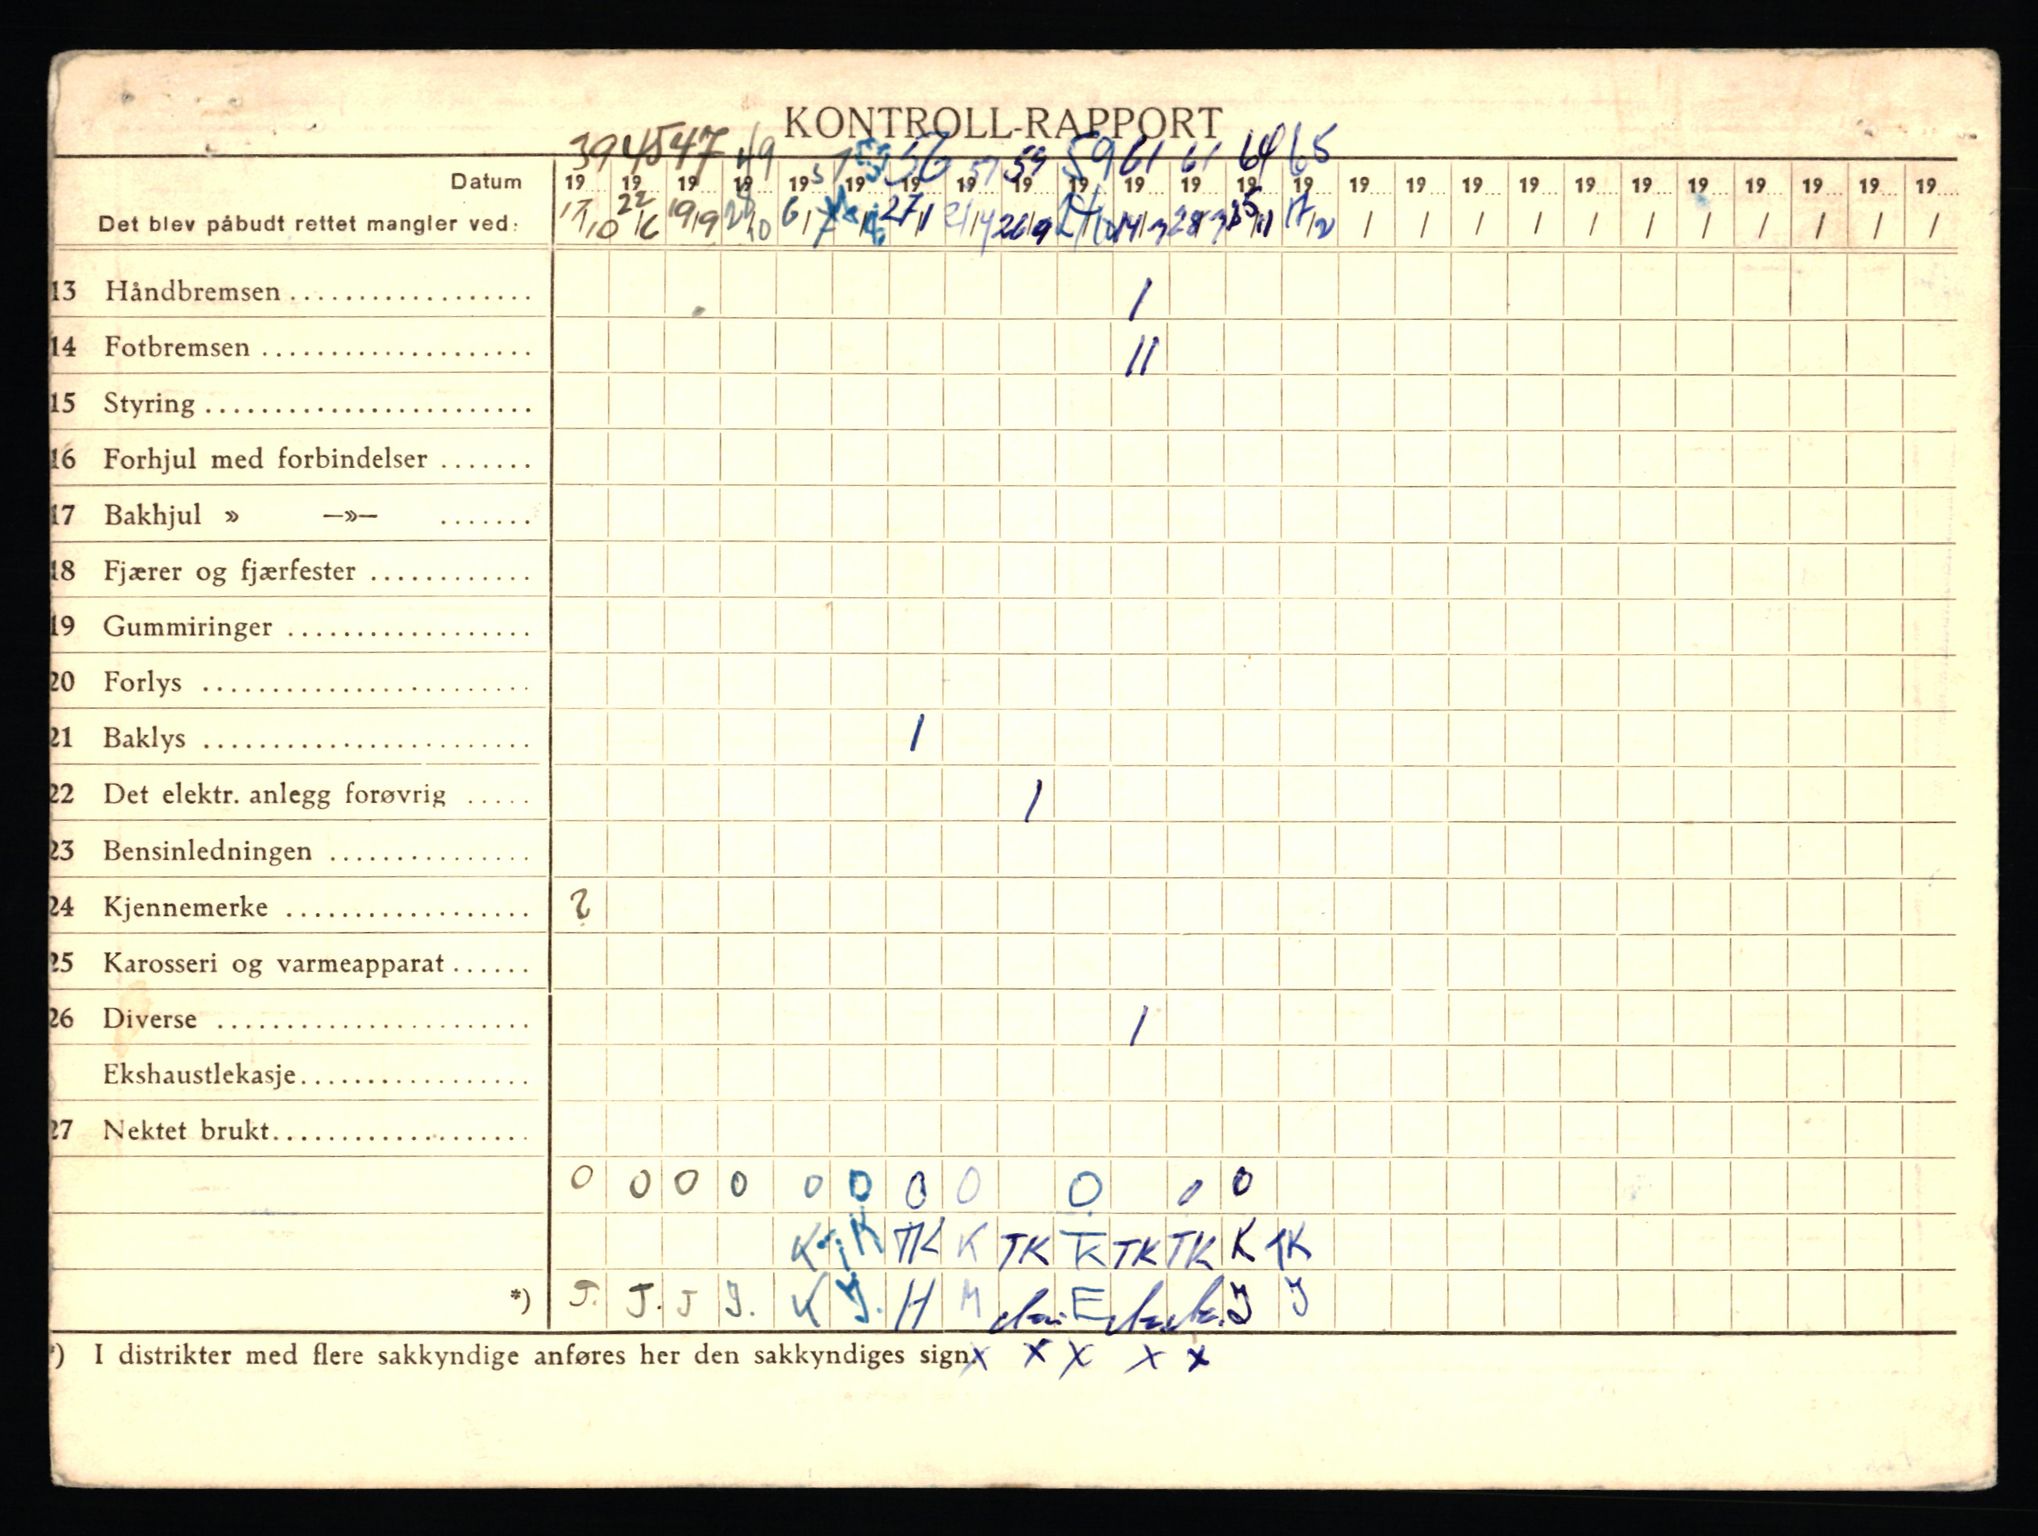 KONTROLL-RAPPORT
39 45 47 49 57 56 57 59 59 61 61 64 65
Datum 19 19 19 19 19 19 19 19 19 19 19 19 19 19 19 19 19 19 19 19 19 19 19 19 19
Det blev påbudt rettet mangler ved: 17/10 22/6 19/9 6/7 27/1 21/4 26/9 14/3 28/3 17/2 / / / / / / / / / / /
13 Håndbremsen 1
14 Fotbremsen 11
15 Styring
16 Forhjul med forbindelser
17 Bakhjul » —»—
18 Fjærer og fjærfester
19 Gummiringer
20 Forlys
21 Baklys 1
22 Det elektr. anlegg forøvrig 1
23 Bensinledningen
24 Kjennemerke ?
25 Karosseri og varmeapparat
26 Diverse 1
Ekshaustlekasje
27 Nektet brukt
0 0 0 0 0 0 0 0 0 0 0
K K TK K TK TK TK TK K TK
*) J. J. J J. K J. H M E J J
*) I distrikter med flere sakkyndige anføres her den sakkyndiges sign. x x x x x